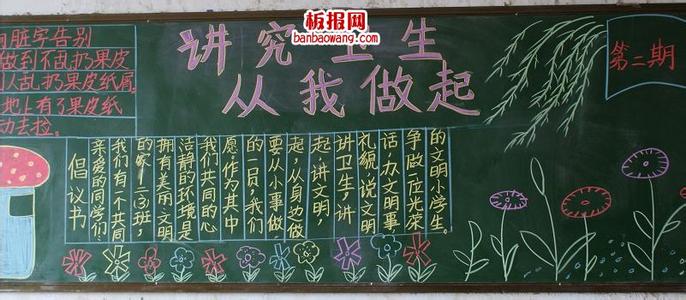 板报网
banbaowang.com
讲究卫生
从我做起
第二期
向脏字告别
做到不乱扔果皮
人乱扔果皮纸屑。
地上有了果皮纸
动去捡。
倡议书
亲爱的同学们:
我们有一个共同
的家—二(3)班,
拥有美丽、文明
洁静的环境是
我们共同的心
愿。作为其中
的一员,我们
要从小事做
起,从身边做
起,讲文明,
讲卫生,讲
礼貌,说文明
话,办文明事
争做一位光荣
的文明小学生。